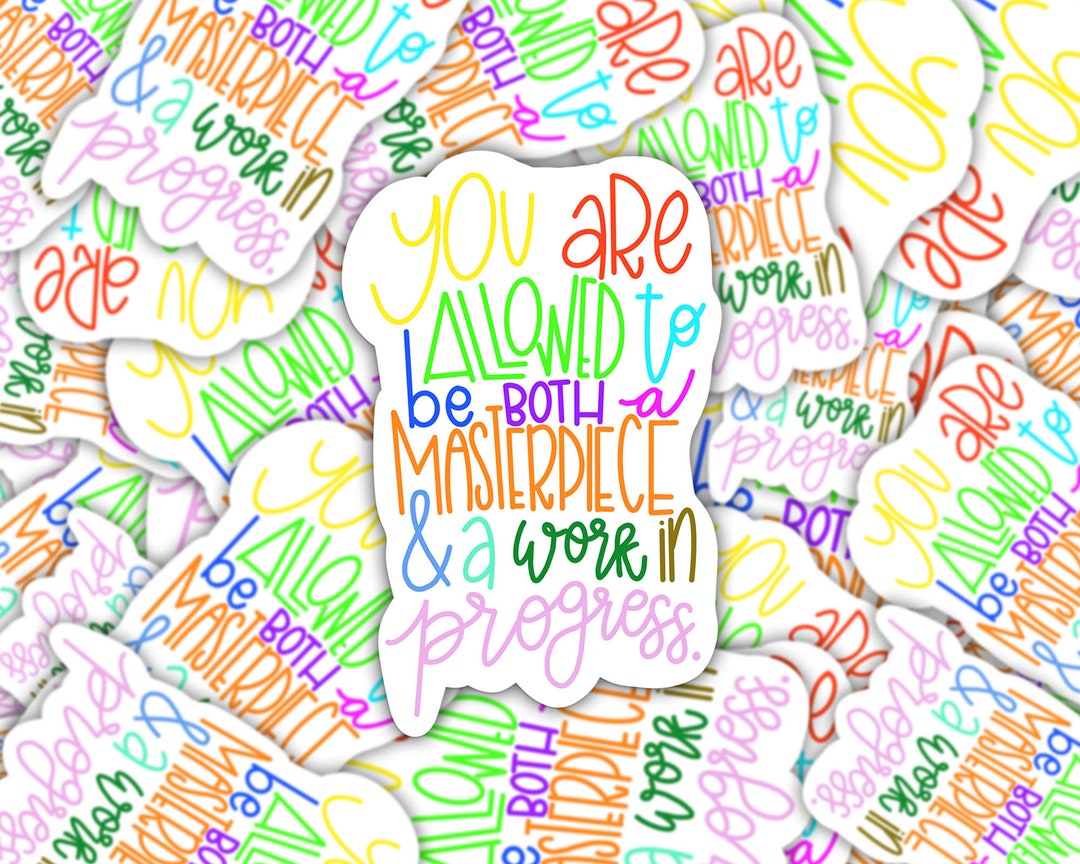 you aRe
ALLOWED to
be BOTH a
MASTERPIECE
& a work in
progress.